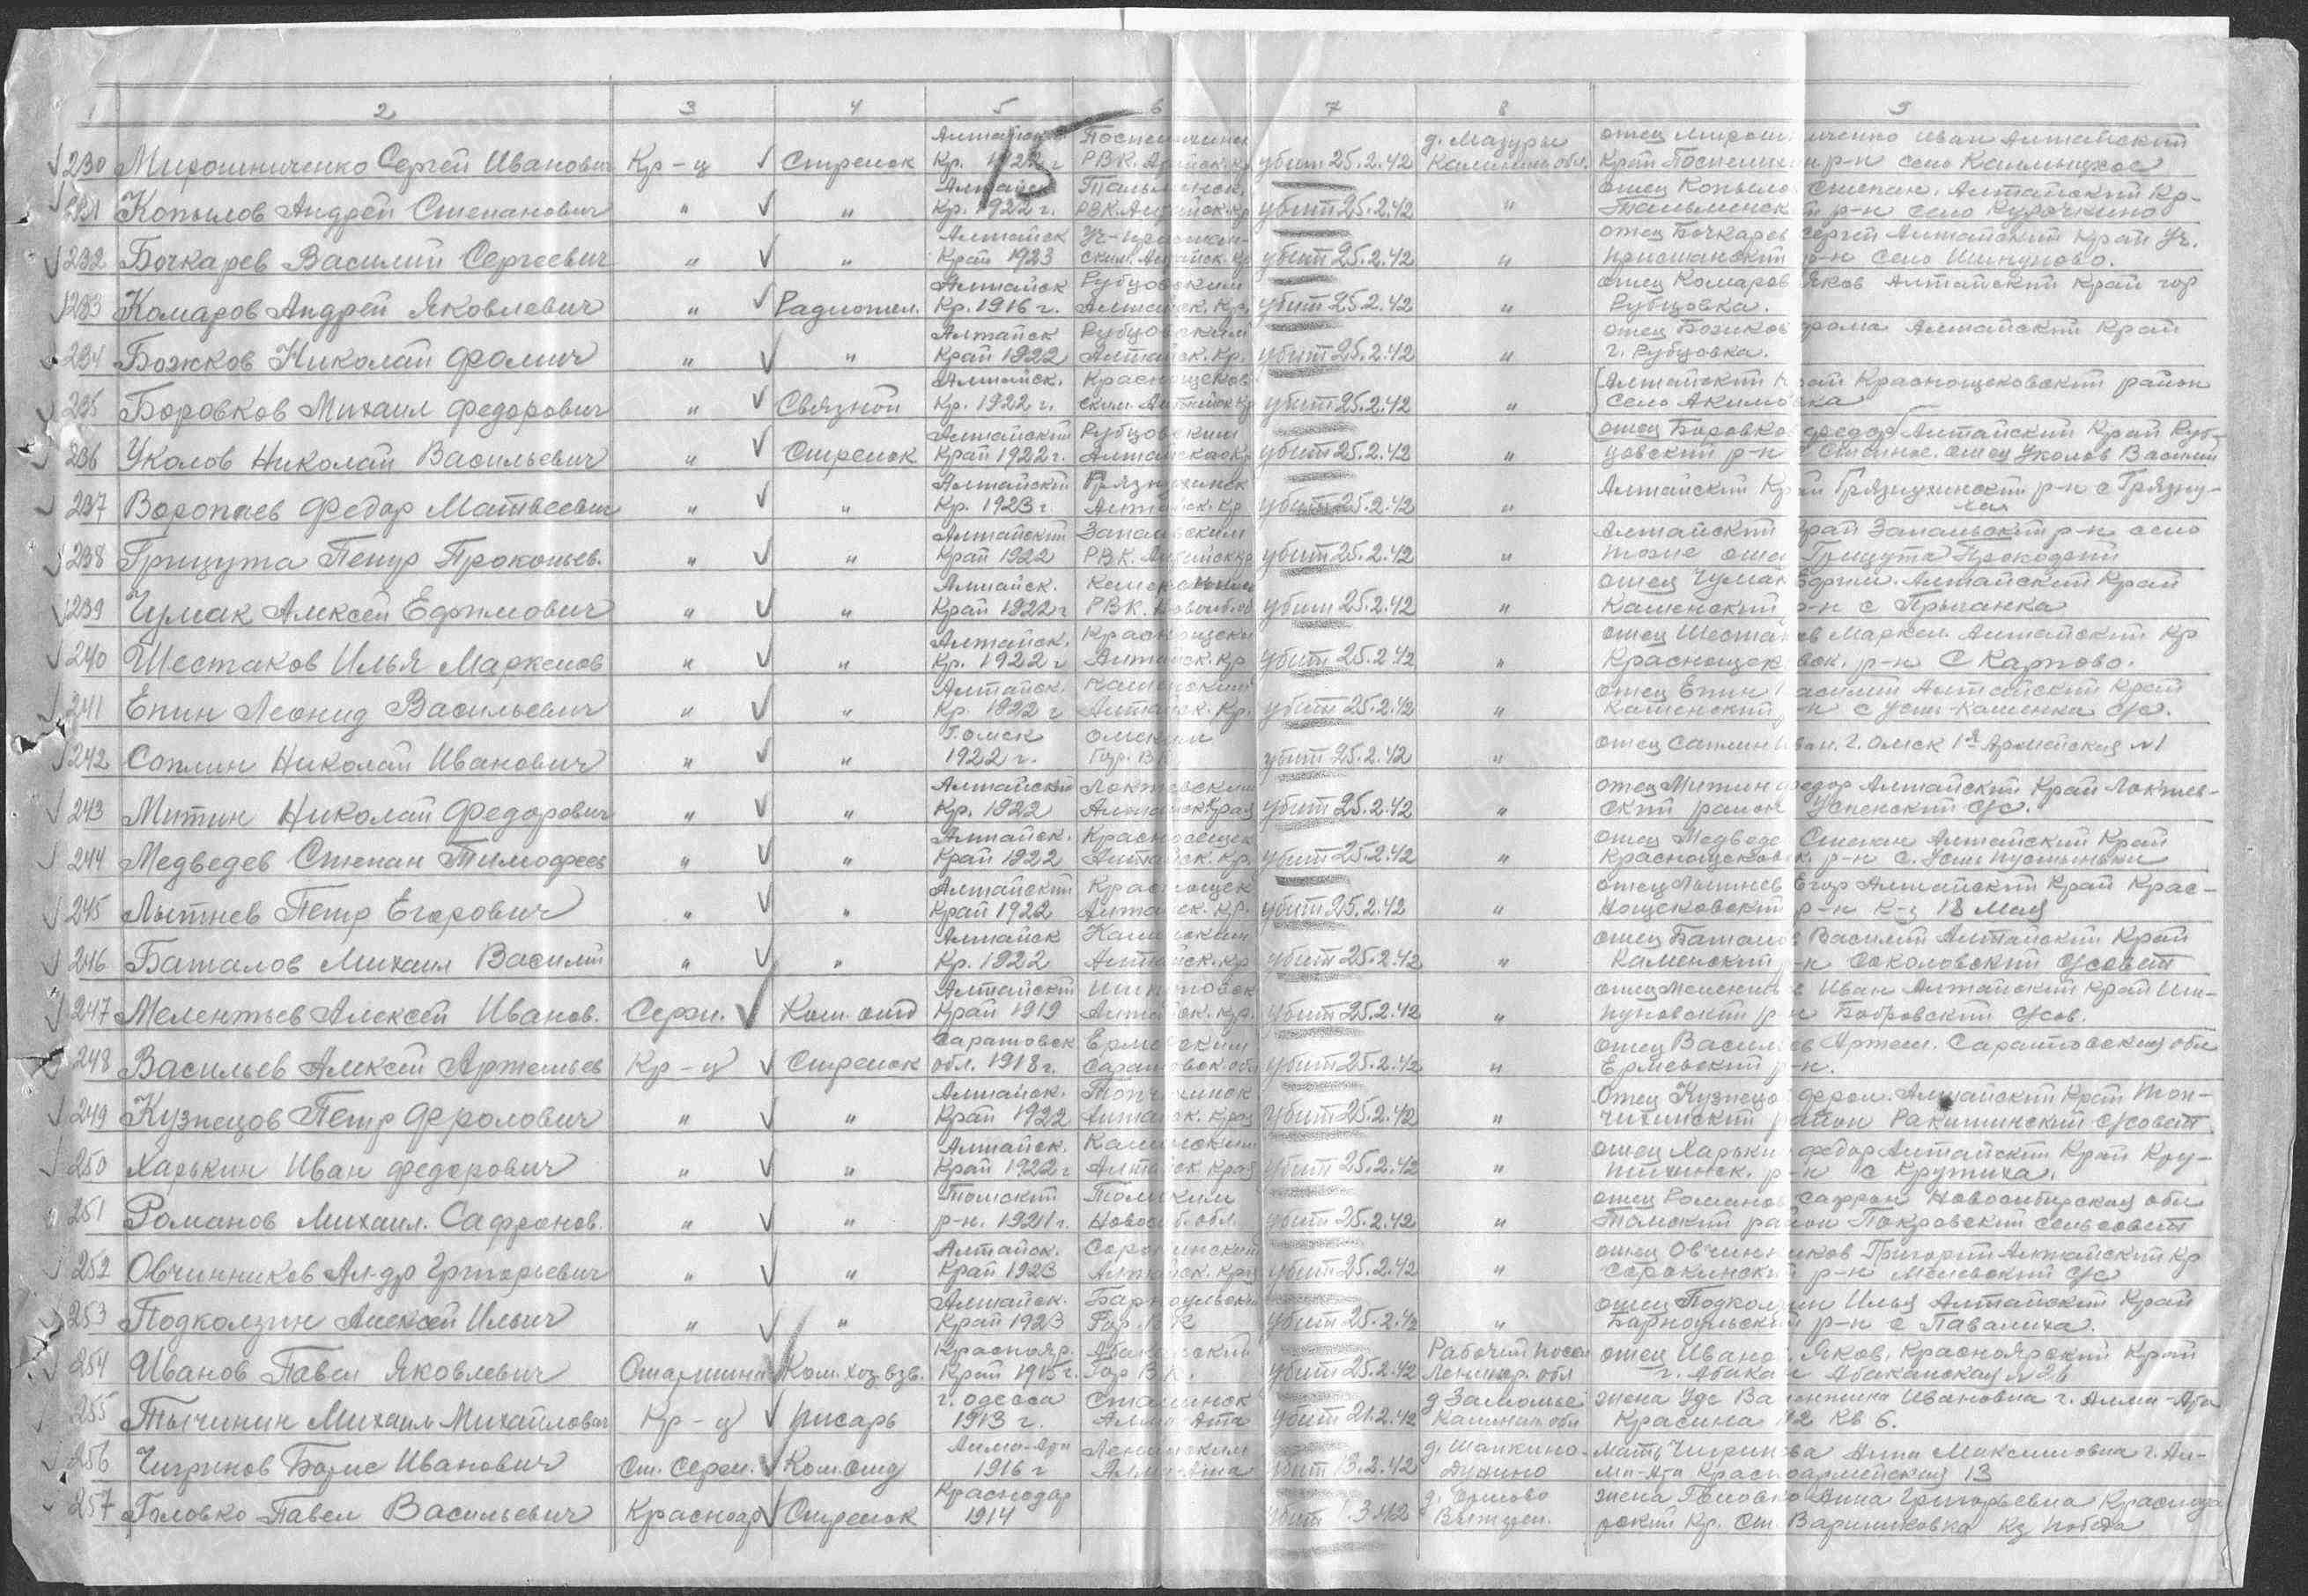 1 2 3 4 5 6 7 8 9
15
230 Мирошниченко Сергей Иванович Кр-ц Стрелок Алтайск Кр. 1922 г РВК. убит 25.2.42 д. Мазуры Калинин. обл. отец Мирошниченко Иван Алтайский Край р-н село
231 Копылов Андрей Степанович " " Алтайск Кр. 1922 г. Тальменск. РВК. Алтайск. кр убит 25.2.42 " отец Копылов Степан. Алтайский Кр. Тальменский р-н село Курочкино
232 Бочкарев Василий Сергеевич " " Алтайск Край 1923 убит 25.2.42 " отец Бочкарев Сергей Алтайский Край Уч. Пристанский р-н село Шипуново.
233 Комаров Андрей Яковлевич " Радиотел. Алтайск Кр. 1916 г. Рубцовским Алтайск. Кр. убит 25.2.42 " отец Комаров Яков Алтайский Край гор Рубцовка.
234 Божков Николай Фомич " " Алтайск Край 1922 Рубцовским Алтайск. Кр. убит 25.2.42 " отец Божков Фома Алтайский Край г. Рубцовка.
235 Боровков Михаил Федорович " Связной Алтайск. Кр. 1922 г. Краснощеков ским. убит 25.2.42 " Алтайский Край Краснощековский район село Акимовка
236 Уколов Николай Васильевич " Стрелок Алтайский Край 1922 г. Рубцовским убит 25.2.42 " отец Боровков Федор Алтайский Край Руб- цовский р-н отец Уколов Василий
237 Воропаев Федор Матвеевич " " Алтайский Кр. 1923 г. Грязнухинск Алтайск. Кр убит 25.2.42 " Алтайский Край Грязнухинский р-н с Грязну-
238 Грицута Петр Прокопьев. " " Алтайский Край 1922 РВК. убит 25.2.42 " Алтайский Край р-н село тоже отец Грицута
239 Чумак Алексей Ефимович " " Алтайск. Край 1922 г РВК. убит 25.2.42 " отец Чумак Ефим. Алтайский Край Каменский р-н с Прыганка
240 Шестаков Илья Маркелов " " Алтайск. Кр. 1922 г Краснощеки Алтайск. Кр убит 25.2.42 " отец Шестаков Маркел. Алтайский Кр Краснощековск. р-н С Карпово.
241 Епин Леонид Васильевич " " Алтайск. Кр. 1922 г Каменским Алтайск. Кр. убит 25.2.42 " отец Епин Василий Алтайский Край Каменский р-н с Усть-Каменка с/с.
242 Соплин Николай Иванович " " г. Омск 1922 г. Омским Гор. ВК убит 25.2.42 " отец Иван. г. Омск 1я Армейская №1
243 Митин Николай Федорович " " Алтайский Кр. 1922 Локтевским убит 25.2.42 " отец Митин Федор Алтайский Край Локтев- ский район Успенский с/с.
244 Медведев Степан Тимофеев " " Алтайск. Край 1922 Краснощек Алтайск. Кр. убит 25.2.42 " отец Медведев Степан Алтайский Край Краснощековск. р-н с.
245 Лытнев Петр Егорович " " Алтайский Край 1922 Краснощек Алтайск. Кр. убит 25.2.42 " отец Лытнев Егор Алтайский Край Крас- нощековский р-н к-з 18 Мая
246 Баталов Михаил Василий " " Алтайск Кр. 1922 Каменским Алтайск. Кр убит 25.2.42 " отец Баталов Василий Алтайский Край Каменский р-н Соколовский с/совет
247 Мелентьев Алексей Иванов. Серж. Ком. отд Алтайский Край 1919 Шипуновск Алтайск. Кр. убит 25.2.42 " отец Мелентьев Иван Алтайский Край Ши- пуновский р-н Бобровский с/сов.
248 Васильев Алексей Артемьев Кр-ц Стрелок Саратовск обл. 1918 г. Саратовск. обл убит 25.2.42 " отец Васильев Артем. Саратовская обл р-н.
249 Кузнецов Петр Фролович " " Алтайск. Край 1922 Топчихинск убит 25.2.42 " Отец Кузнецов Фрол. Алтайский Край Топ- чихинский район Ракитинский с/совет
250 Харькин Иван Федорович " " Алтайск. Край 1922 г Каменским Алтайск Края убит 25.2.42 " отец Харькин Федор Алтайский Край Кру- тихинск. р-н с Крутиха.
251 Романов Михаил. Сафронов. " " Томский р-н. 1921 г. Томским Новосиб. обл. убит 25.2.42 " отец Романов Сафрон Новосибирская обл Томский район Покровский сельсовет
252 Овчинников Ал-др Григорьевич " " Алтайск. Край 1923 Сорокинский Алтайск. Края убит 25.2.42 " отец Овчинников Григорий Алтайский Кр Сорокинский р-н с/с
253 Подколзин Алексей Ильич " " Алтайск. Край 1923 Барнаульским Гор. ВК убит 25.2.42 " отец Подколзин Илья Алтайский Край Барнаульский р-н с Павалиха.
254 Иванов Павел Яковлевич Старшина Ком. хоз. взв. Краснояр. Край 1915 г. Абаканский Гор ВК. убит 25.2.42 Рабочий посел Ленингр. обл отец Иванов Яков, Красноярский Край г. Абакан Абаканская № 26
255 Тычинин Михаил Михайлович Кр-ц писарь г. Одесса 1913 г. Сталинск Алма-Ата убит 21.2.42 Калинин обл жена Ивановна г. Алма-Ата Красина кв 6.
256 Чигринов Борис Иванович Ст. серж. Ком. отд Алма-Ата 1916 г Ленинским Алма-Ата убит 13.2.42 д. мать Чигринова Анна Максимовна г. Ал- ма-Ата Красноармейская 13
257 Головко Павел Васильевич Красноар Стрелок Краснодар 1914 убит 1.3.42 д. жена Головко Анна Григорьевна Краснода рский Кр. ст. Варениковка кз победа